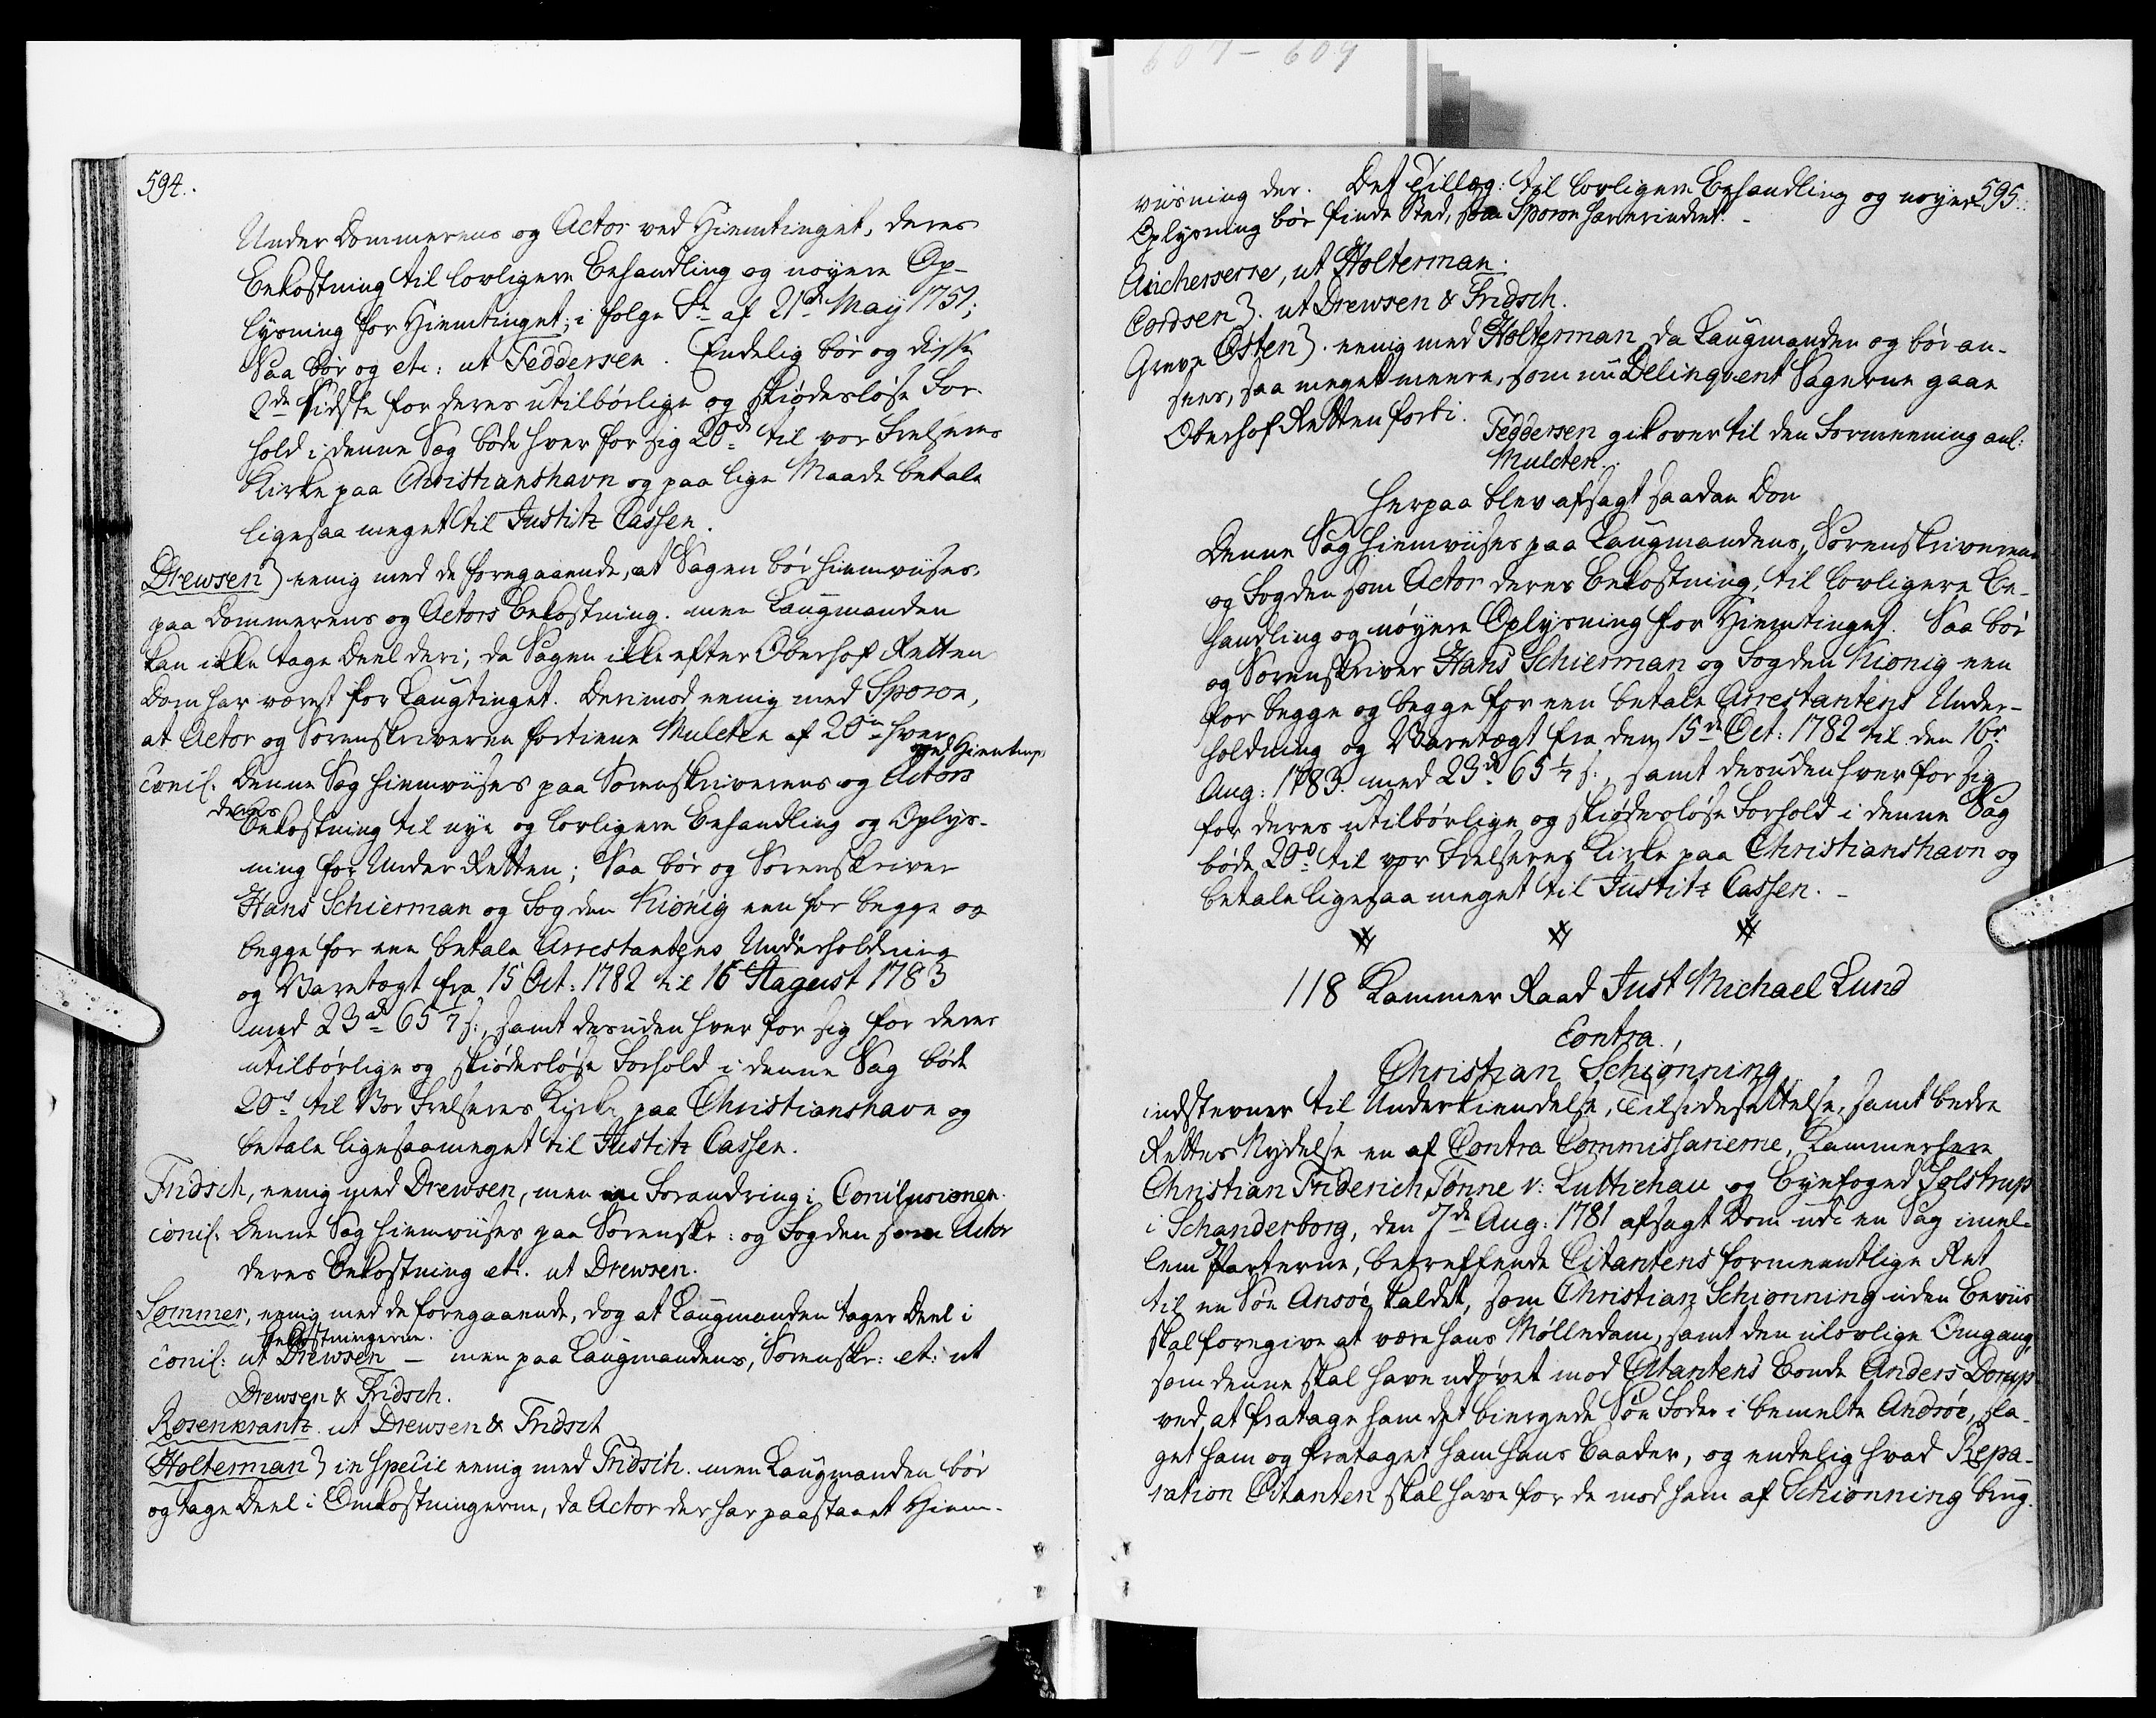 607 - 609
594.
Under Dommerens og Actor ved Hiemtinget, deres
Bekostning til lovligere Behandling og nøyere Op-
lysning for Hiemtinget; i følge Fr. af 21de May 1751;
Saa bør og etc: ut Feddersen. Endelig bør og disse
2de sidste for deres utilbørlige og skiødesløse For-
hold i denne Sag bøde hver for sig 20rd til vor Frelseres
Kirke paa Christianshavn og paa lige Maade betale
ligesaa meget til Justitz Cassen.
Drewsen) eenig med de foregaaende, at Sagen bør hiemviises
paa Dommerens og Actors Bekostning. men Laugmanden
kan ikke tage Deel deri, da Sagen ikke efter Oberhof Retten
Dom har været for Laugtinget. Derimod eenig med Sporon,
at Actor og Sorenskriveren fortiene Mulcten af 20rd hver
ved Hiemtinge
concl. Denne Sag hiemviises paa Sorenskriverens og Actors
deres
Bekostning til nye og lovligere Behandling og Oplys-
ning for Under Retten; Saa bør og Sorenskriver
Hans Schierman og Fogden Kiönig een for begge og
begge for een betale Arrestantens Underholdning
og Varetægt fra 15 Oct: 1782 til 16 August 1783
med 23rd 65 1/7 s:, samt desuden hver for sig for deres
utilbørlige og skiødesløse Forhold i denne Sag bøde
20rd til Vor Frelseres Kirke paa Christianshavn og
betale ligesaameget til Justitz Cassen.
Fridsch, eenig med Drewsen, men en Forandring i Conclusionen.
concl. Denne Sag hiemviises paa Sorenskr: og Fogden som Actor
deres Bekostning etc. ut Drewsen.
Sommer, eenig med de foregaaende, dog at Laugmanden tager Deel i
Bekostningerne.
concl: ut Drewsen – men paa Laugmandens, Sorenskr: etc: ut
Drewsen & Fridsch.
Rosenkrantz. ut Drewsen & Fridsch
Holterman) in specie eenig med Fridsch. men Laugmanden bør
og tage Deel i Omkostningerne, da Actor der har paastaaet Hiem-
595.
viisning der. Det Tillæg: til lovligere Behandling og nøyere
Oplysning bør finde Sted, som Sporon har erindret. –
Aicherserre, ut Holterman.
Cordsen). ut Drewsen & Fridsch.
Greve Osten). eenig med Holterman da Laugmanden og bør an-
sees, saa meget meere, som nu Delinqvent Sagerne gaae
Oberhof Retten forbi.
Feddersen gik over til den Formeening anl:
Mulcten.
Herpaa blev afsagt saadan Dom
Denne Sag hiemviises paa Laugmandens, Sorenskriverens
og Fogden som Actor deres Bekostning, til lovligere Be-
handling og nøyere Oplysning for Hiemtinget. Saa bør
og Sorenskriver Hans Schierman og Fogden Kionig een
for begge og begge for een betale Arrestantens Under-
holdning og Varetægt fra den 15de Oct: 1782 til den 16de
Aug: 1783. med 23rd 65 1/7 s:, samt desuden hver for sig
for deres utilbørlige og skiødesløse Forhold i denne Sag
bøde 20rd til vor Frelseres Kirke paa Christianshavn og
betale ligesaa meget til Justitz Cassen. –
118 Kammer Raad Just Michael Lund
Contra.,
Christian Schiønning
indstevner til Underkiendelse, Tilsidesættelse, samt bedre
Rettes Nydelse en af Contra Commissarierne, Kammerherre
Christian Friderich Tønne v: Luttichau og Byefoged Solstrup
i Schanderborg, den 7de Aug: 1781 afsagt Dom udi en Sag imel-
lem Parterne, betreffende Citantens formeentlige Ret
til en Søe Ansöe kaldet, som Christian Schionning uden Beviis
skal foregive at være hans Mølledam, samt den ulovlige Omgang,
som denne skal have udøvet mod Citantens Bonde Anders Dorup
ved at fratage ham det biergede Søe Foder i bemelte Andsöe, sla-
get ham og frataget ham hans Baader, og endelig hvad Repa-
ration Citanten skal have for de mod ham af Schionning brug-